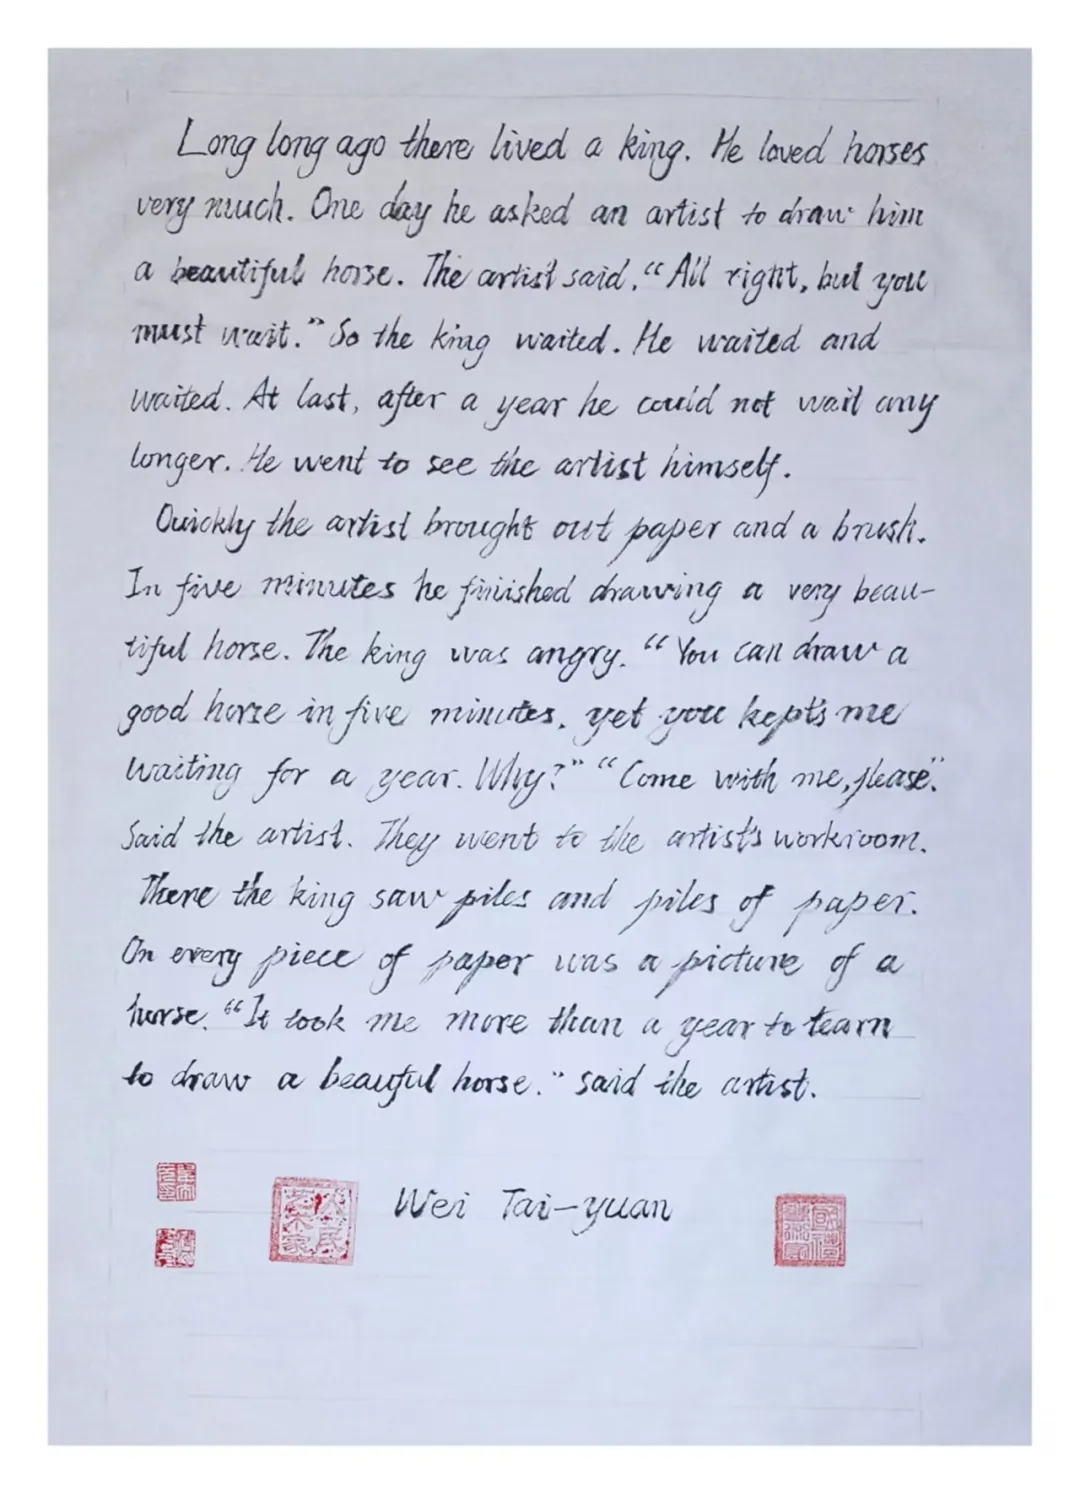 Long long ago there lived a king. He loved horses
very much. One day he asked an artist to draw him
a beautiful horse. The artist said, “All right, but you
must wait.” So the king waited. He waited and
waited. At last, after a year he could not wait any
longer. He went to see the artist himself.
Quickly the artist brought out paper and a brush.
In five minutes he finished drawing a very beau-
tiful horse. The king was angry. “You can draw a
good horse in five minutes, yet you kepts me
waiting for a year. Why?” “Come with me, please.”
Said the artist. They went to the artist's workroom.
There the king saw piles and piles of paper.
On every piece of paper was a picture of a
horse. “It took me more than a year to learn
to draw a beauful horse.” said the artist.
Wei Tai-yuan
人民
艺术家